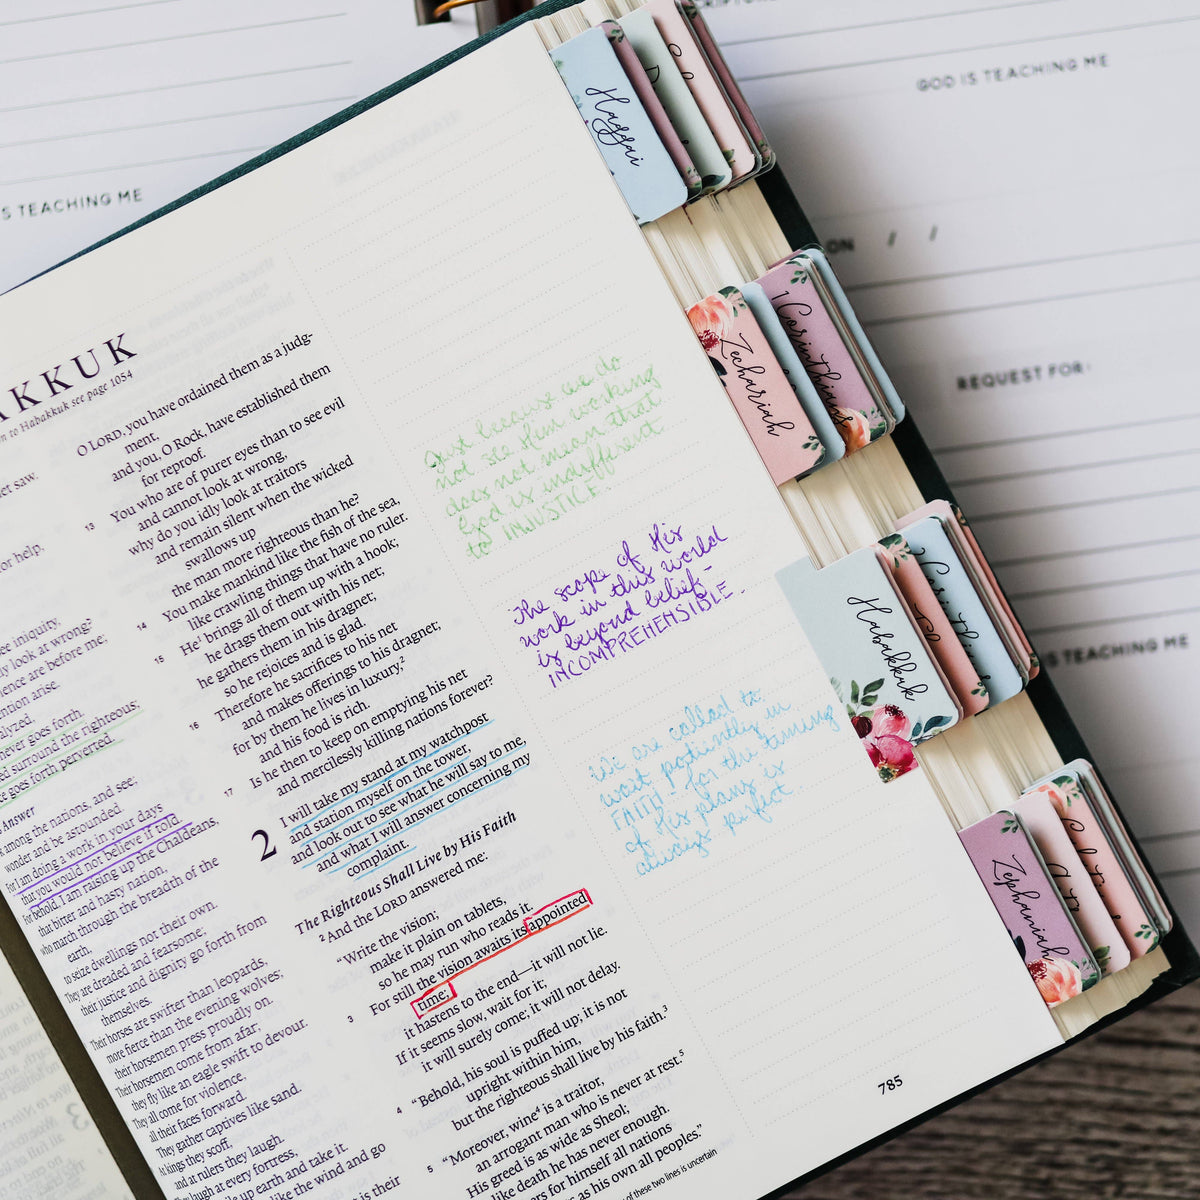 SCRIPTURE
GOD IS TEACHING ME
S TEACHING ME
ON / /
REQUEST FOR:
S TEACHING ME
Haggai
Zechariah
1 Corinthians
Habakkuk
Zephaniah
AKKUK
n to Habakkuk see page 1054
et saw.
or help,
ee iniquity,
ly look at wrong?
lence are before me;
ntention arise.
alyzed,
never goes forth.
ed surround the righteous;
e goes forth perverted.
Answer
among the nations, and see;
wonder and be astounded.
for I am doing a work in your days
that you would not believe if told.
for behold, I am raising up the Chaldeans,
that bitter and hasty nation,
who march through the breadth of the
earth,
to seize dwellings not their own.
They are dreaded and fearsome;
their justice and dignity go forth from
themselves.
Their horses are swifter than leopards,
more fierce than the evening wolves;
their horsemen press proudly on.
Their horsemen come from afar;
they fly like an eagle swift to devour.
They all come for violence,
all their faces forward.
They gather captives like sand.
At kings they scoff,
and at rulers they laugh.
laugh at every fortress,
le up earth and take it.
like the wind and go
is their
O LORD, you have ordained them as a judg-
ment,
and you, O Rock, have established them
for reproof.
13 You who are of purer eyes than to see evil
and cannot look at wrong,
why do you idly look at traitors
and remain silent when the wicked
swallows up
the man more righteous than he?
14 You make mankind like the fish of the sea,
like crawling things that have no ruler.
15 He¹ brings all of them up with a hook;
he drags them out with his net;
he gathers them in his dragnet;
so he rejoices and is glad.
16 Therefore he sacrifices to his net
and makes offerings to his dragnet;
for by them he lives in luxury,²
and his food is rich.
17 Is he then to keep on emptying his net
and mercilessly killing nations forever?
2 I will take my stand at my watchpost
and station myself on the tower,
and look out to see what he will say to me,
and what I will answer concerning my
complaint.
The Righteous Shall Live by His Faith
²And the LORD answered me:
"Write the vision;
make it plain on tablets,
so he may run who reads it.
3 For still the vision awaits its appointed
time;
it hastens to the end—it will not lie.
If it seems slow, wait for it;
it will surely come; it will not delay.
4 "Behold, his soul is puffed up; it is not
upright within him,
but the righteous shall live by his faith.³
5 "Moreover, wine⁴ is a traitor,
an arrogant man who is never at rest.⁵
His greed is as wide as Sheol;
like death he has never enough.
ers for himself all nations
s as his own all peoples."
of these two lines is uncertain
Just because we do
not see Him working
does not mean that
God is indifferent
to INJUSTICE.
The scope of His
work in this world
is beyond belief-
INCOMPREHENSIBLE.
We are called to
wait patiently in
FAITH for the timing
of His plans is
always perfect
785